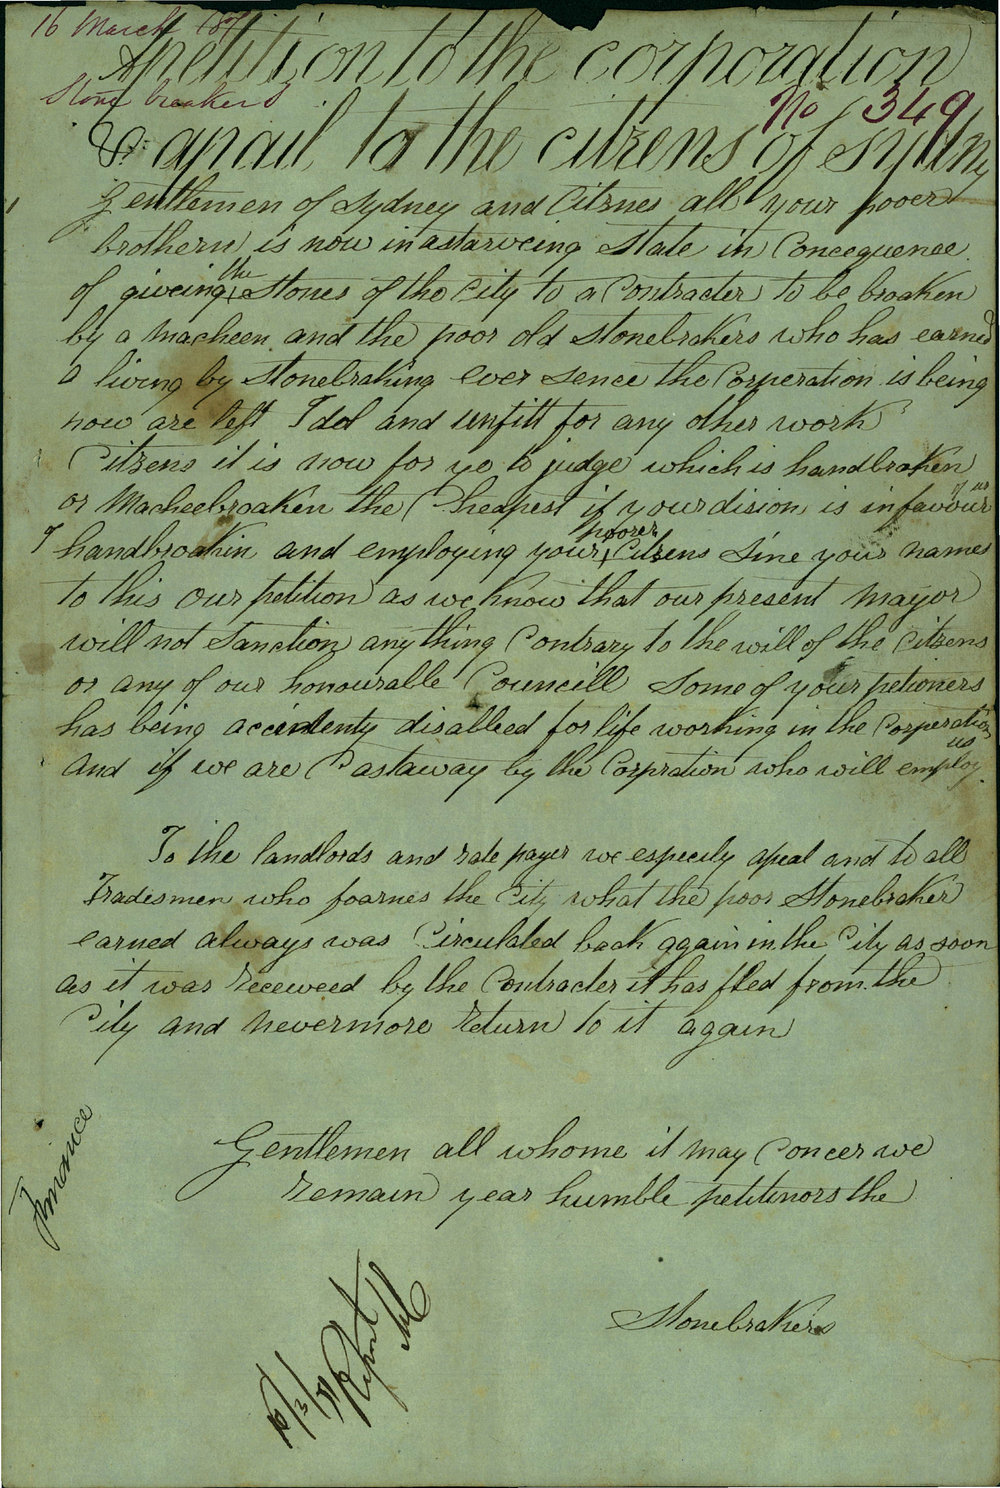 16 March 187
A petition to the corporation
Stone breakers
No 349
& apail to the citzens of Sydny
Gentlemen of Sydney and Citznes all your pooer
brothern is now in a starveing state in Concequence
of giveing the Stones of the City to a Contracter to be broaken
by a Macheen and the poor old stonebrakers who has earned
a living by Stonebraking ever sence the Corperation is being
now are left Idol and unfitt for any other work
Citzens it is now for ye to judge which is handbroaken
or Macheebroaken the Cheapest if your dision is in favour of us
handbroakin and employing your poorer Citzens Sine your names
to this our petition as we know that our present Mayor
will not Sanction anything Contrary to the will of the Citzens
or any of our honourable Councill Some of your petioners
has being accidently disableed for life working in the Corperation
And if we are Castaway by the Corpration who will employ us
To the landlords and rate payer we especily apeal and to all
Tradesmen who foarnes the City what the poor Stonebraker
earned always was Circulated back again in the City as soon
as it was receweed by the Contracter it has fled from the
City and nevermore return to it again
Finance
Gentlemen all whome it may Concer we
remain year humble petitinors the
Stonebrakers
Report